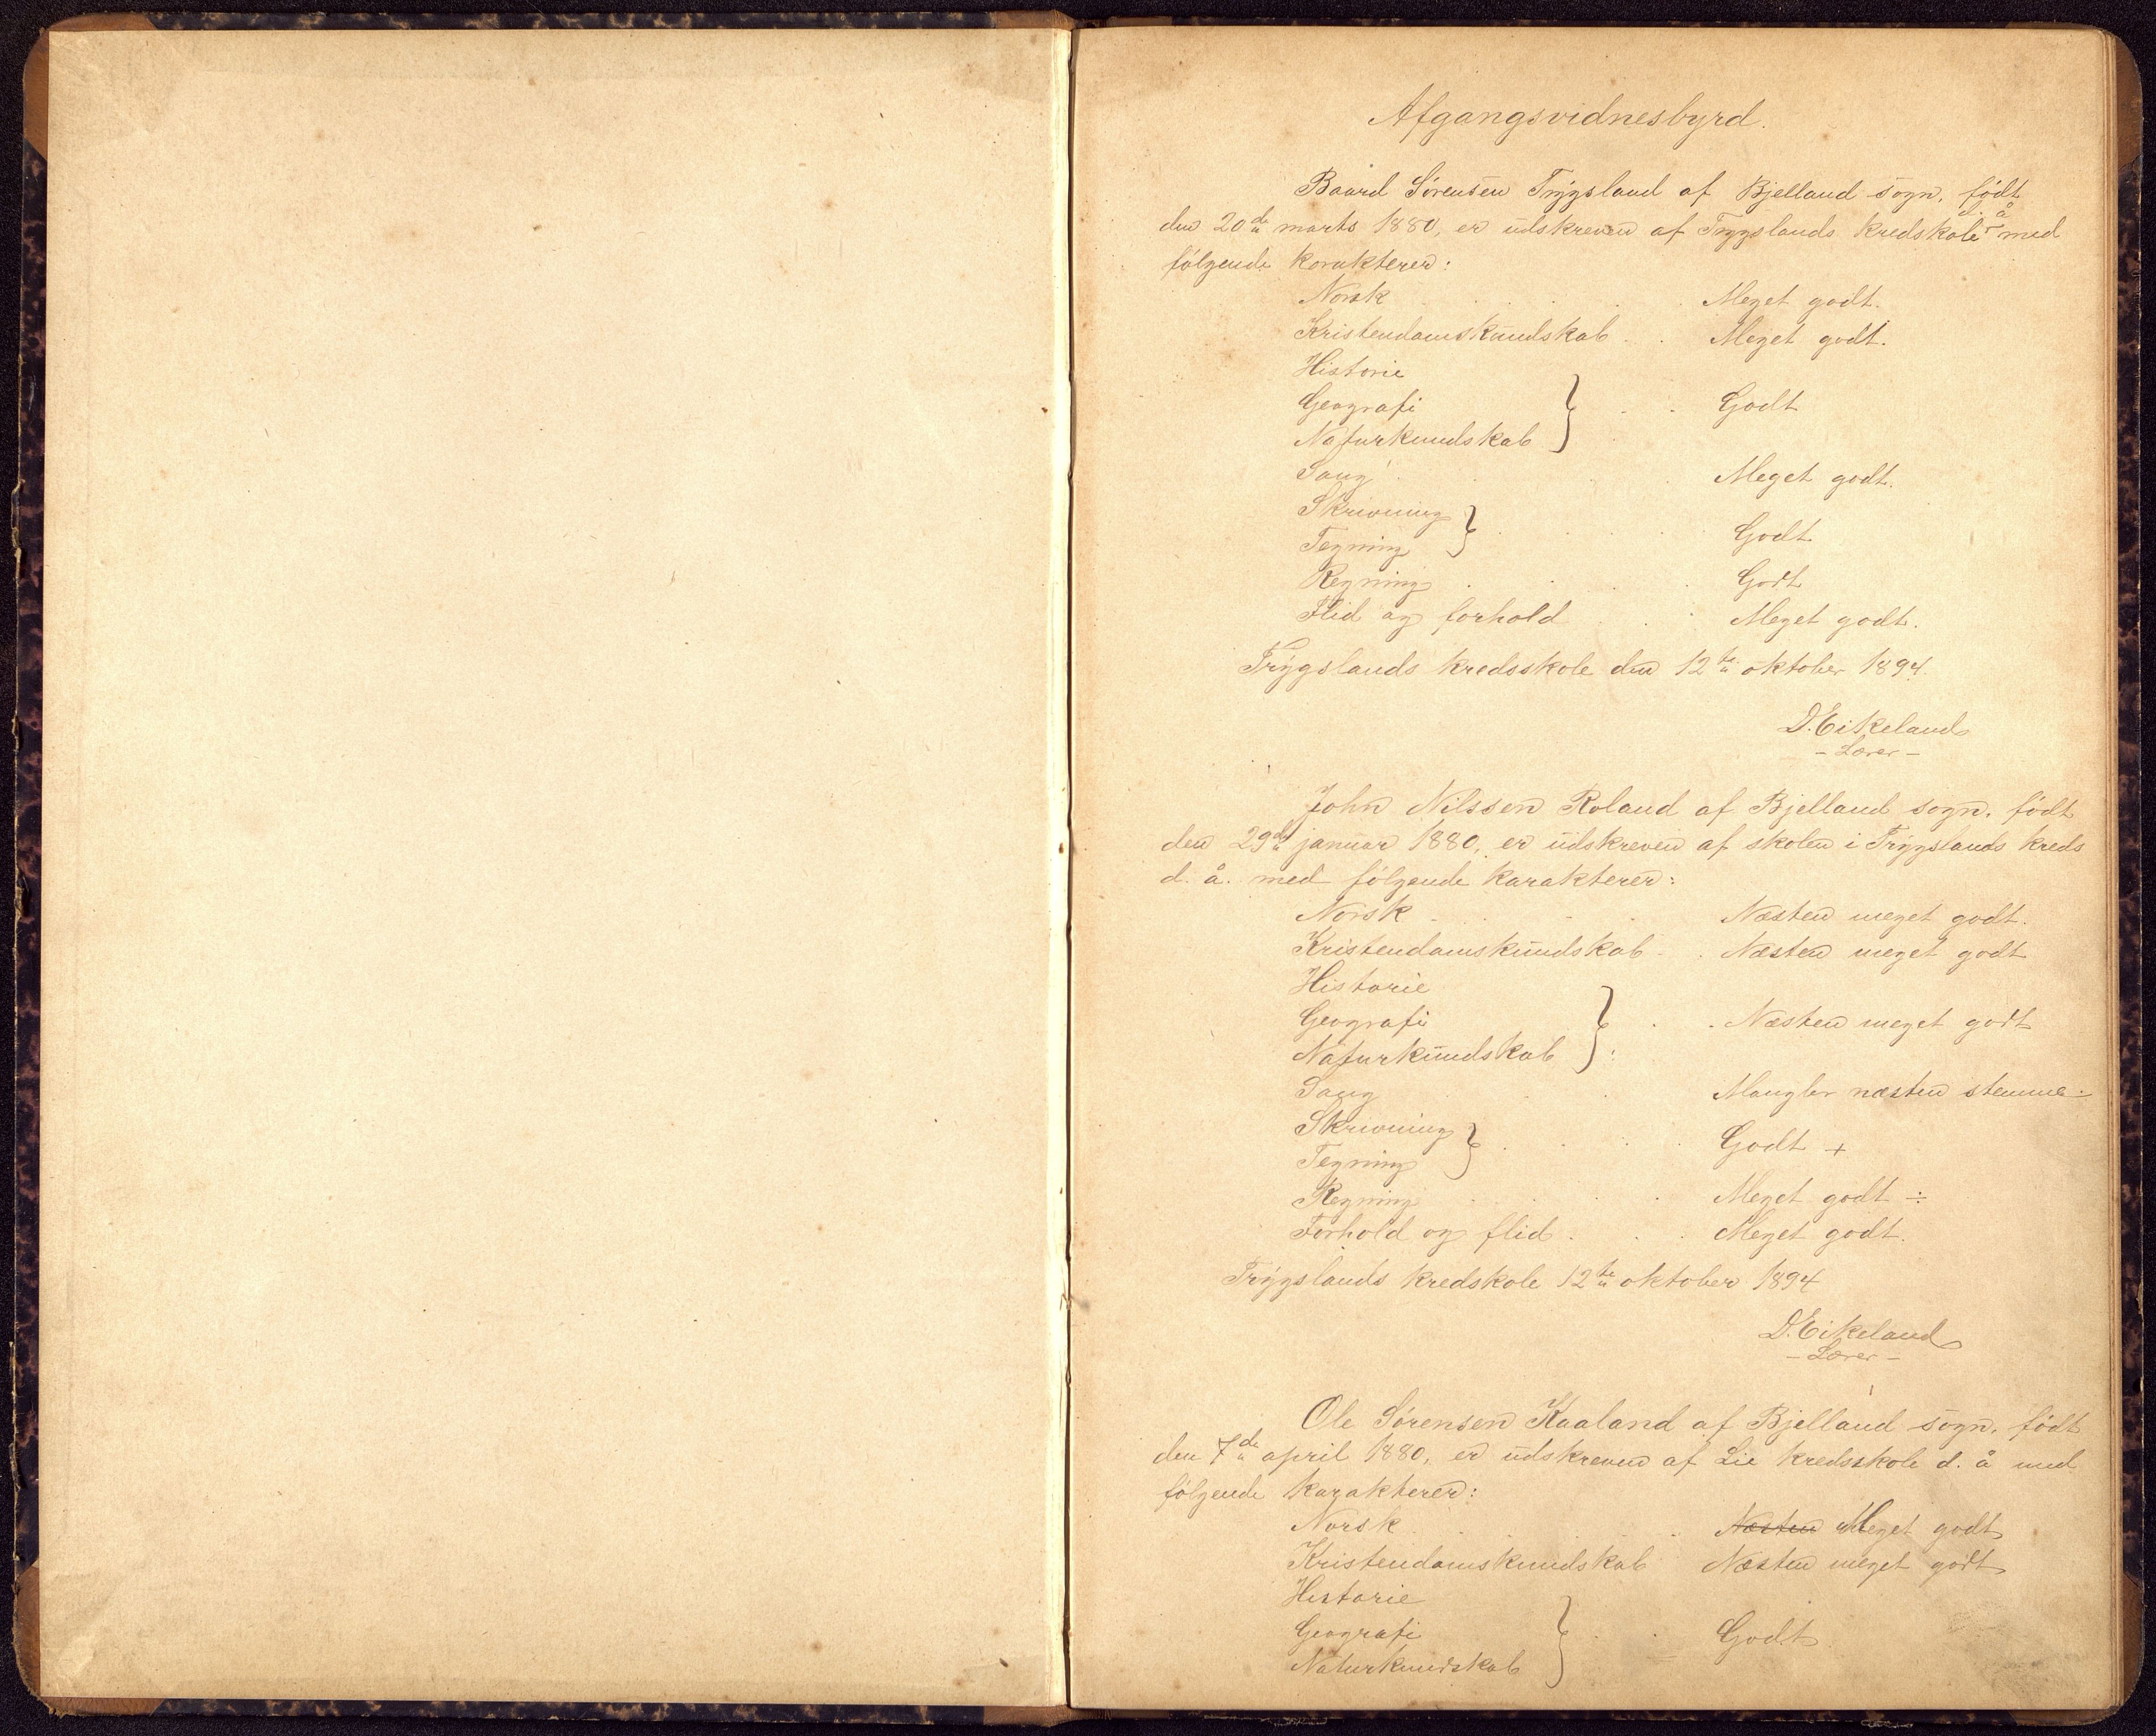 Afgangsvidnesbyrd.
Baard Sørensen Trygsland af Bjelland sogn, født
den 20de marts 1880, er udskreven af Trygslands kredskole d. å med
følgende karakterer:
Norsk . . . . Meget godt.
Kristendomskundskab . . Meget godt.
Historie
Geografi } . . Godt
Naturkundskab
Sang . . . Meget godt.
Skrivning
Tegning } . . . Godt
Regning . . . . Godt
Flid og forhold . . Meget godt.
Trygslands kredsskole den 12te oktober 1894.
D. Eikeland
- Lærer -
John Nilssen Roland af Bjelland sogn, født
den 29de januar 1880, er udskreven af skolen i Trygslands kreds
d. å. med følgende karakterer:
Norsk . . . Næsten meget godt.
Kristendomskundskab . . Næsten meget godt
Historie
Geografi } . . Næsten meget godt
Naturkundskab
Sang . . Mangler næsten stemme.
Skrivning
Tegning } . . . Godt +
Regning . . . . Meget godt ÷
Forhold og flid . . . Meget godt.
Trygslands kredskole 12te oktober 1894
D. Eikeland
- Lærer -
Ole Sørensen Kaaland af Bjelland sogn, født
den 7de april 1880, er udskreven af Lie kredsskole d. å med
følgende karakterer:
Norsk . . . . Næsten Meget godt
Kristendomskundskab Næsten meget godt
Historie
Geografi } . . Godt
Naturkundskab